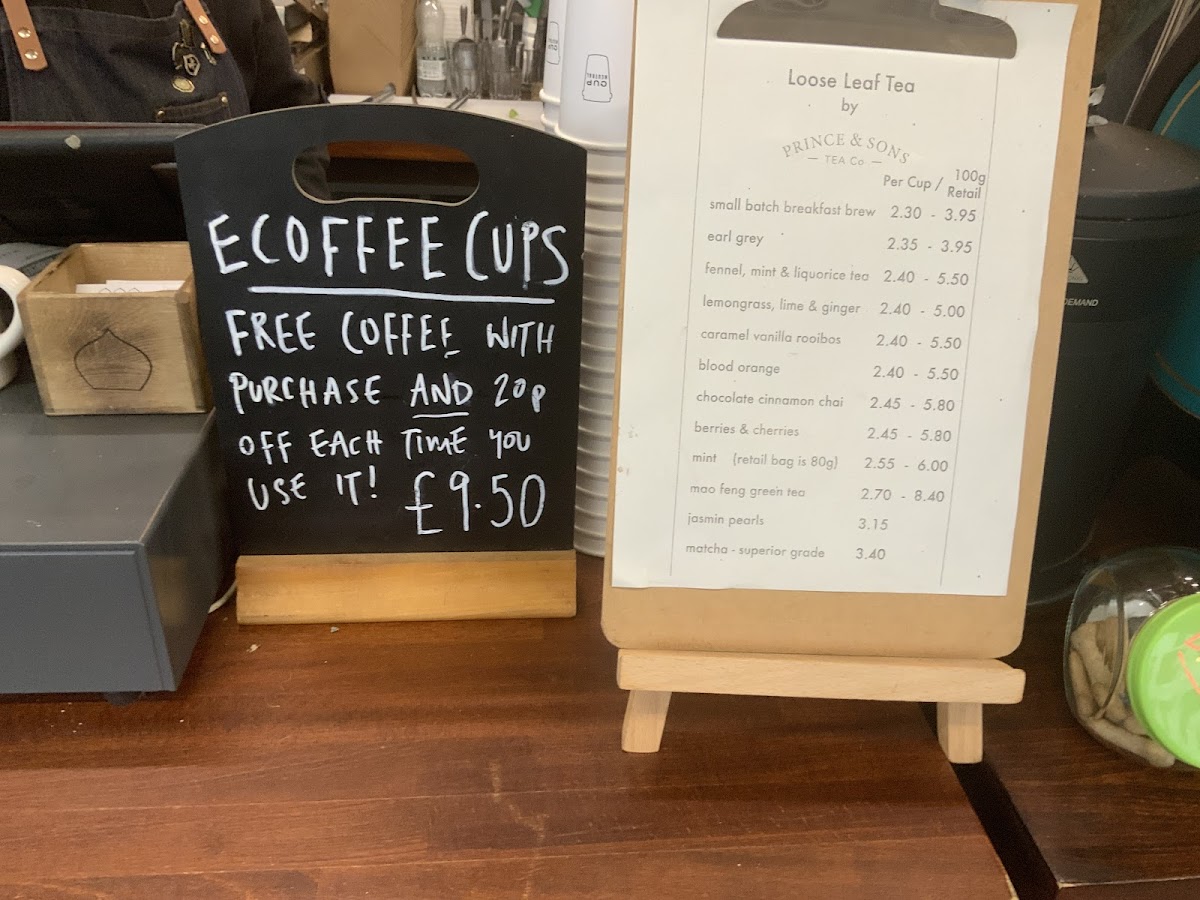 ECOFFEE CUPS
FREE COFFEE WITH
PURCHASE AND 20p
OFF EACH TIME YOU
USE IT! £9.50
CUP
NEUTRAL
Loose Leaf Tea
by
PRINCE & SONS
— TEA Co —
Per Cup / 100g Retail
small batch breakfast brew 2.30 - 3.95
earl grey 2.35 - 3.95
fennel, mint & liquorice tea 2.40 - 5.50
lemongrass, lime & ginger 2.40 - 5.00
caramel vanilla rooibos 2.40 - 5.50
blood orange 2.40 - 5.50
chocolate cinnamon chai 2.45 - 5.80
berries & cherries 2.45 - 5.80
mint (retail bag is 80g) 2.55 - 6.00
mao feng green tea 2.70 - 8.40
jasmin pearls 3.15
matcha - superior grade 3.40
DEMAND